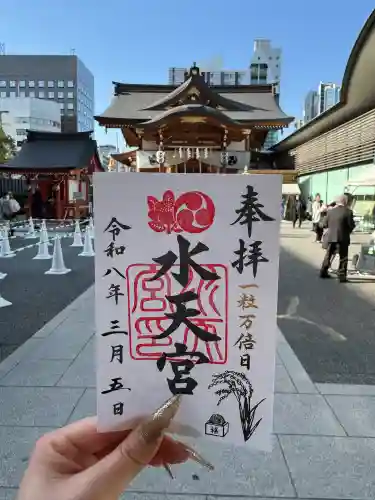 奉拝
一粒万倍日
水天宮
令和八年三月五日
福